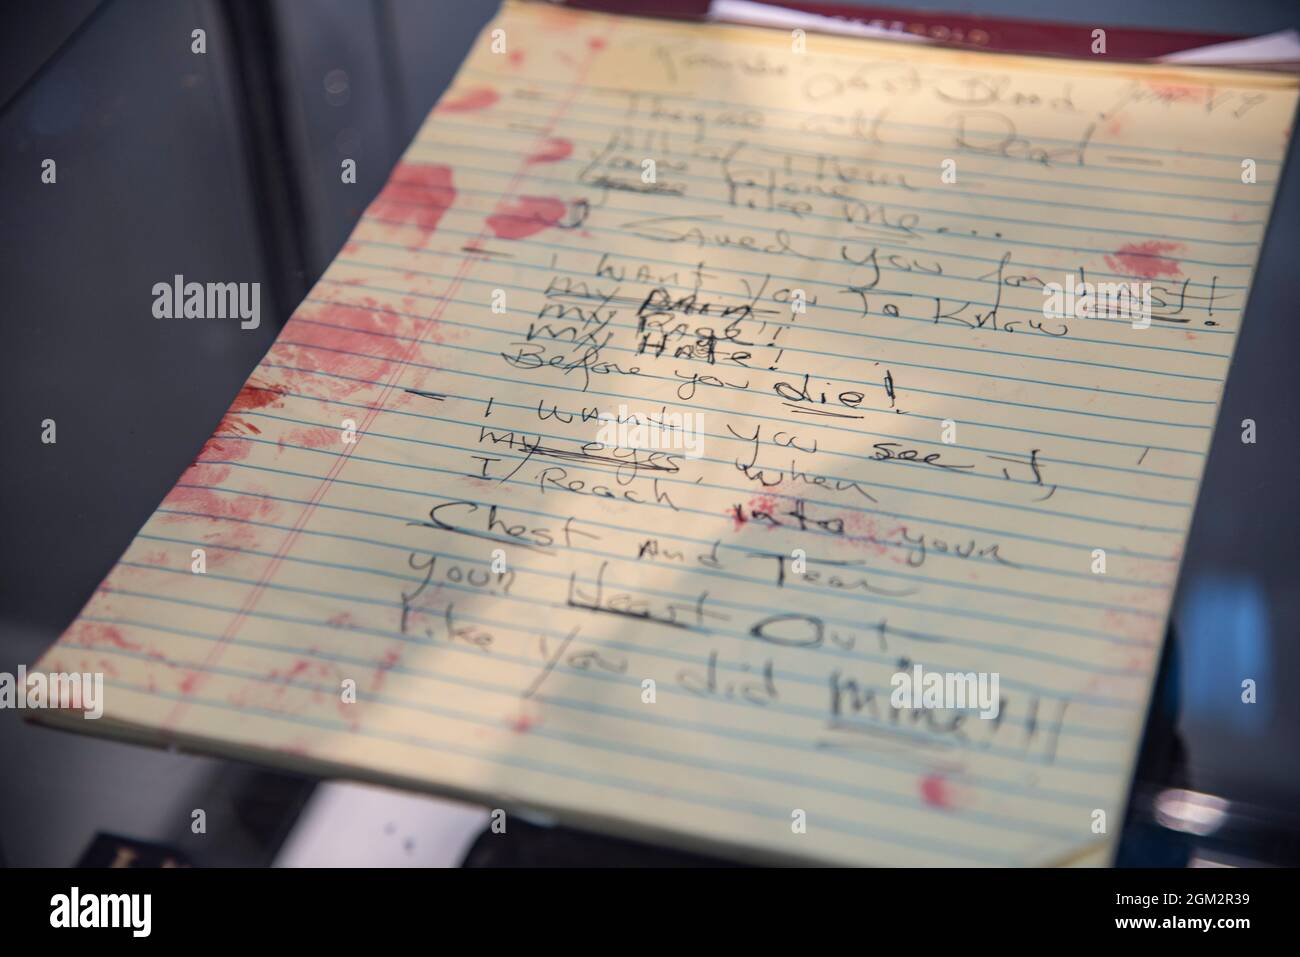 First Blood
They're all Dead —
All of Them —
Alone
like me...
I Saved you for LAST!
— I WANT you To Know
my PAIN!
my RAGE!!
my HATE!
Before you die!
— I WANT you see it,
my eyes, when
I Reach into your
Chest AND Tear
your Heart Out.
like you did Mine!!!
alamy
alamy
Image ID: 2GM2R39
www.alamy.com